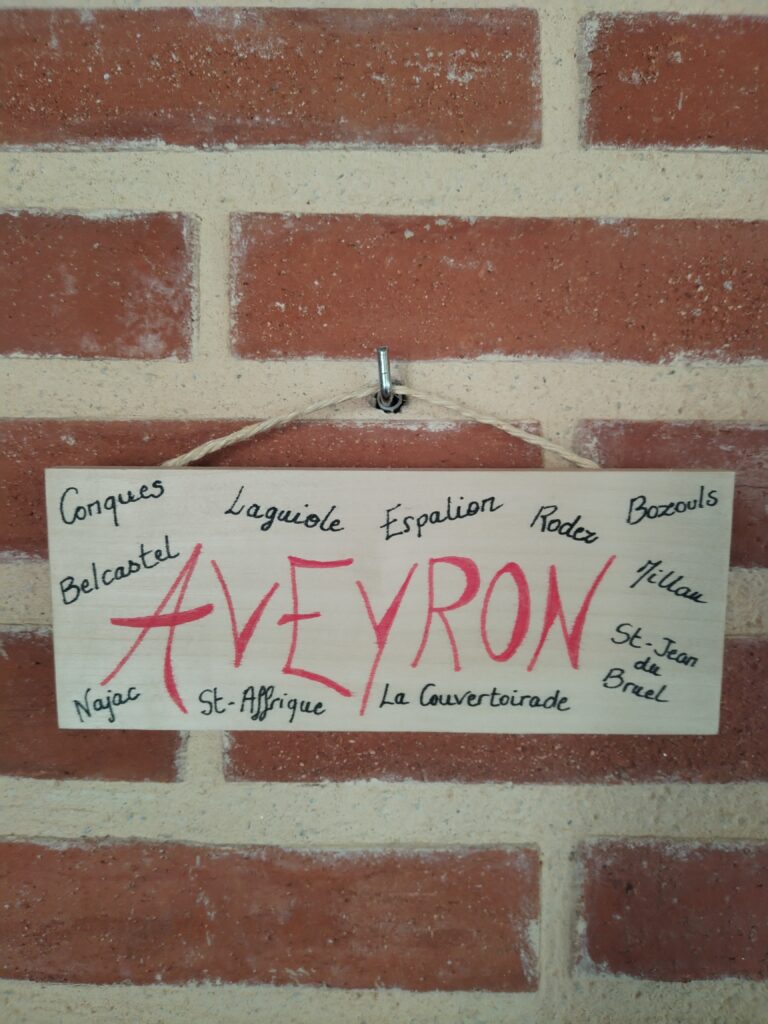 Conques
Laguiole
Espalion
Rodez
Bozouls
Belcastel
AVEYRON
Millau
St-Jean
du
Bruel
Najac
St-Affrique
La Couvertoirade